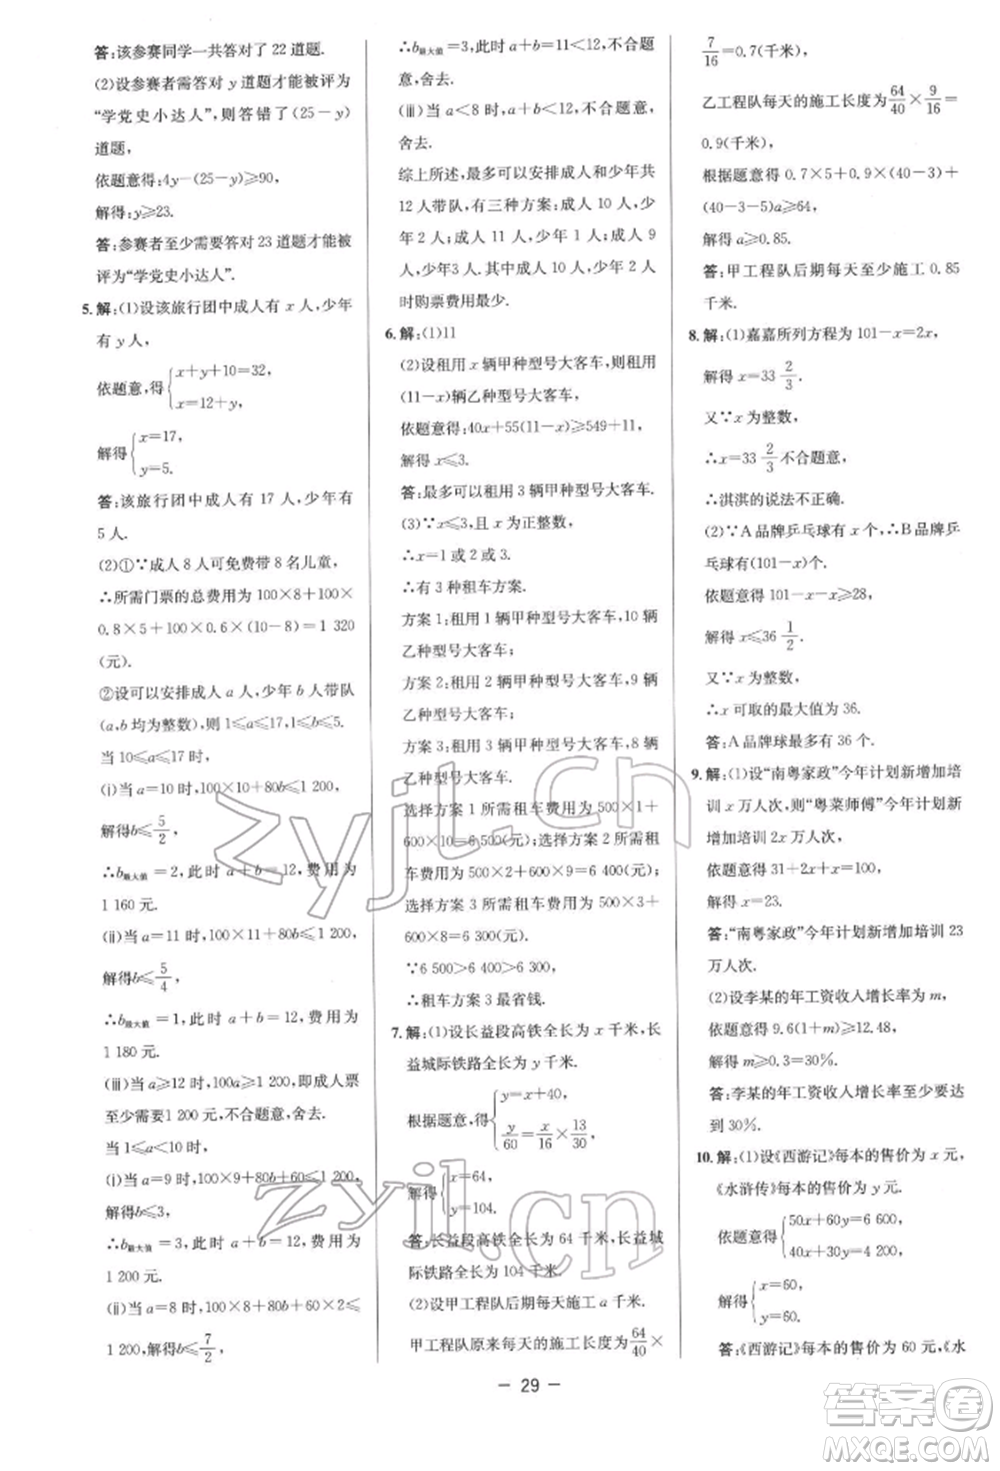 答:该参赛同学一共答对了 22 道题.
(2)设参赛者需答对 y 道题才能被评为
“学党史小达人”,则答错了(25-y)
道题,
依题意得:4y-(25-y)≥90,
解得:y≥23.
答:参赛者至少需要答对 23 道题才能被
评为“学党史小达人”.
5.解:(1)设该旅行团中成人有 x 人,少年
有 y 人,
依题意,得{x+y+10=32,
x=12+y,
解得{x=17,
y=5.
答:该旅行团中成人有 17 人,少年有
5 人.
(2)①∵成人 8 人可免费带 8 名儿童,
∴所需门票的总费用为 100×8+100×
0.8×5+100×0.6×(10-8)=1 320
(元).
②设可以安排成人 a 人,少年 b 人带队
(a,b 均为整数),则 1≤a≤17,1≤b≤5.
当 10≤a≤17 时,
(ⅰ)当 a=10 时,100×10+80b≤1 200,
解得b≤5/2,
∴b最大值=2,此时 a+b=12,费用为
1 160 元.
(ⅱ)当 a=11 时,100×11+80b≤1 200,
解得b≤5/4,
∴b最大值=1,此时 a+b=12,费用为
1 180 元.
(ⅲ)当 a≥12 时,100a≥1 200,即成人票
至少需要 1 200 元,不合题意,舍去.
当 1≤a<10 时,
(ⅰ)当 a=9 时,100×9+80b+60≤1 200,
解得b≤3,
∴b最大值=3,此时 a+b=12,费用为
1 200 元.
(ⅱ)当 a=8 时,100×8+80b+60×2≤
1 200,解得 b≤7/2,
∴b最大值=3,此时 a+b=11<12,不合题
意,舍去.
(ⅲ)当 a<8 时,a+b<12,不合题意,
舍去.
综上所述,最多可以安排成人和少年共
12 人带队,有三种方案:成人 10 人,少
年 2 人;成人 11 人,少年 1 人;成人 9
人,少年3 人,其中当成人 10 人,少年 2 人
时购票费用最少.
6.解:(1)11
(2)设租用 x 辆甲种型号大客车,则租用
(11-x)辆乙种型号大客车,
依题意得:40x+55(11-x)≥549+11,
解得 x≤3.
答:最多可以租用 3 辆甲种型号大客车.
(3)∵x≤3,且 x 为正整数,
∴x=1 或 2 或 3.
∴有 3 种租车方案.
方案 1:租用 1 辆甲种型号大客车,10 辆
乙种型号大客车;
方案 2:租用 2 辆甲种型号大客车,9 辆
乙种型号大客车;
方案 3:租用 3 辆甲种型号大客车,8 辆
乙种型号大客车.
选择方案 1 所需租车费用为 500×1+
600×10=6 500(元);选择方案 2 所需租
车费用为 500×2+600×9=6 400(元);
选择方案 3 所需租车费用为 500×3+
600×8=6 300(元).
∵6 500>6 400>6 300,
∴租车方案 3 最省钱.
7.解:(1)设长益段高铁全长为 x 千米,长
益城际铁路全长为 y 千米.
根据题意,得{y=x+40,
y/60=x/16×13/30,
解得{x=64,
y=104.
答:长益段高铁全长为 64 千米,长益城
际铁路全长为 104 千米.
(2)设甲工程队后期每天施工 a 千米.
甲工程队原来每天的施工长度为64/40×
7/16=0.7(千米),
乙工程队每天的施工长度为64/40×9/16=
0.9(千米),
根据题意得 0.7×5+0.9×(40-3)+
(40-3-5)a≥64,
解得 a≥0.85.
答:甲工程队后期每天至少施工 0.85
千米.
8.解:(1)嘉嘉所列方程为 101-x=2x,
解得 x=33 2/3.
又∵x 为整数,
∴x=33 2/3不合题意,
∴淇淇的说法不正确.
(2)∵A 品牌乒乓球有 x 个,∴B 品牌乒
乓球有(101-x)个,
依题意得 101-x-x≥28,
解得 x≤36 1/2.
又∵x 为整数,
∴x 可取的最大值为 36.
答:A 品牌球最多有 36 个.
9.解:(1)设“南粤家政”今年计划新增加培
训 x 万人次,则“粤菜师傅”今年计划新
增加培训 2x 万人次,
依题意得 31+2x+x=100,
解得 x=23.
答:“南粤家政”今年计划新增加培训 23
万人次.
(2)设李某的年工资收入增长率为 m,
依题意得 9.6(1+m)≥12.48,
解得 m≥0.3=30%.
答:李某的年工资收入增长率至少要达
到 30%.
10.解:(1)设《西游记》每本的售价为 x 元,
《水浒传》每本的售价为 y 元.
依题意得{50x+60y=6 600,
40x+30y=4 200,
解得{x=60,
y=60.
答:《西游记》每本的售价为 60 元,《水
— 29 —
zyjl.cn
zyjl.cn
答案圈
MXQE.COM